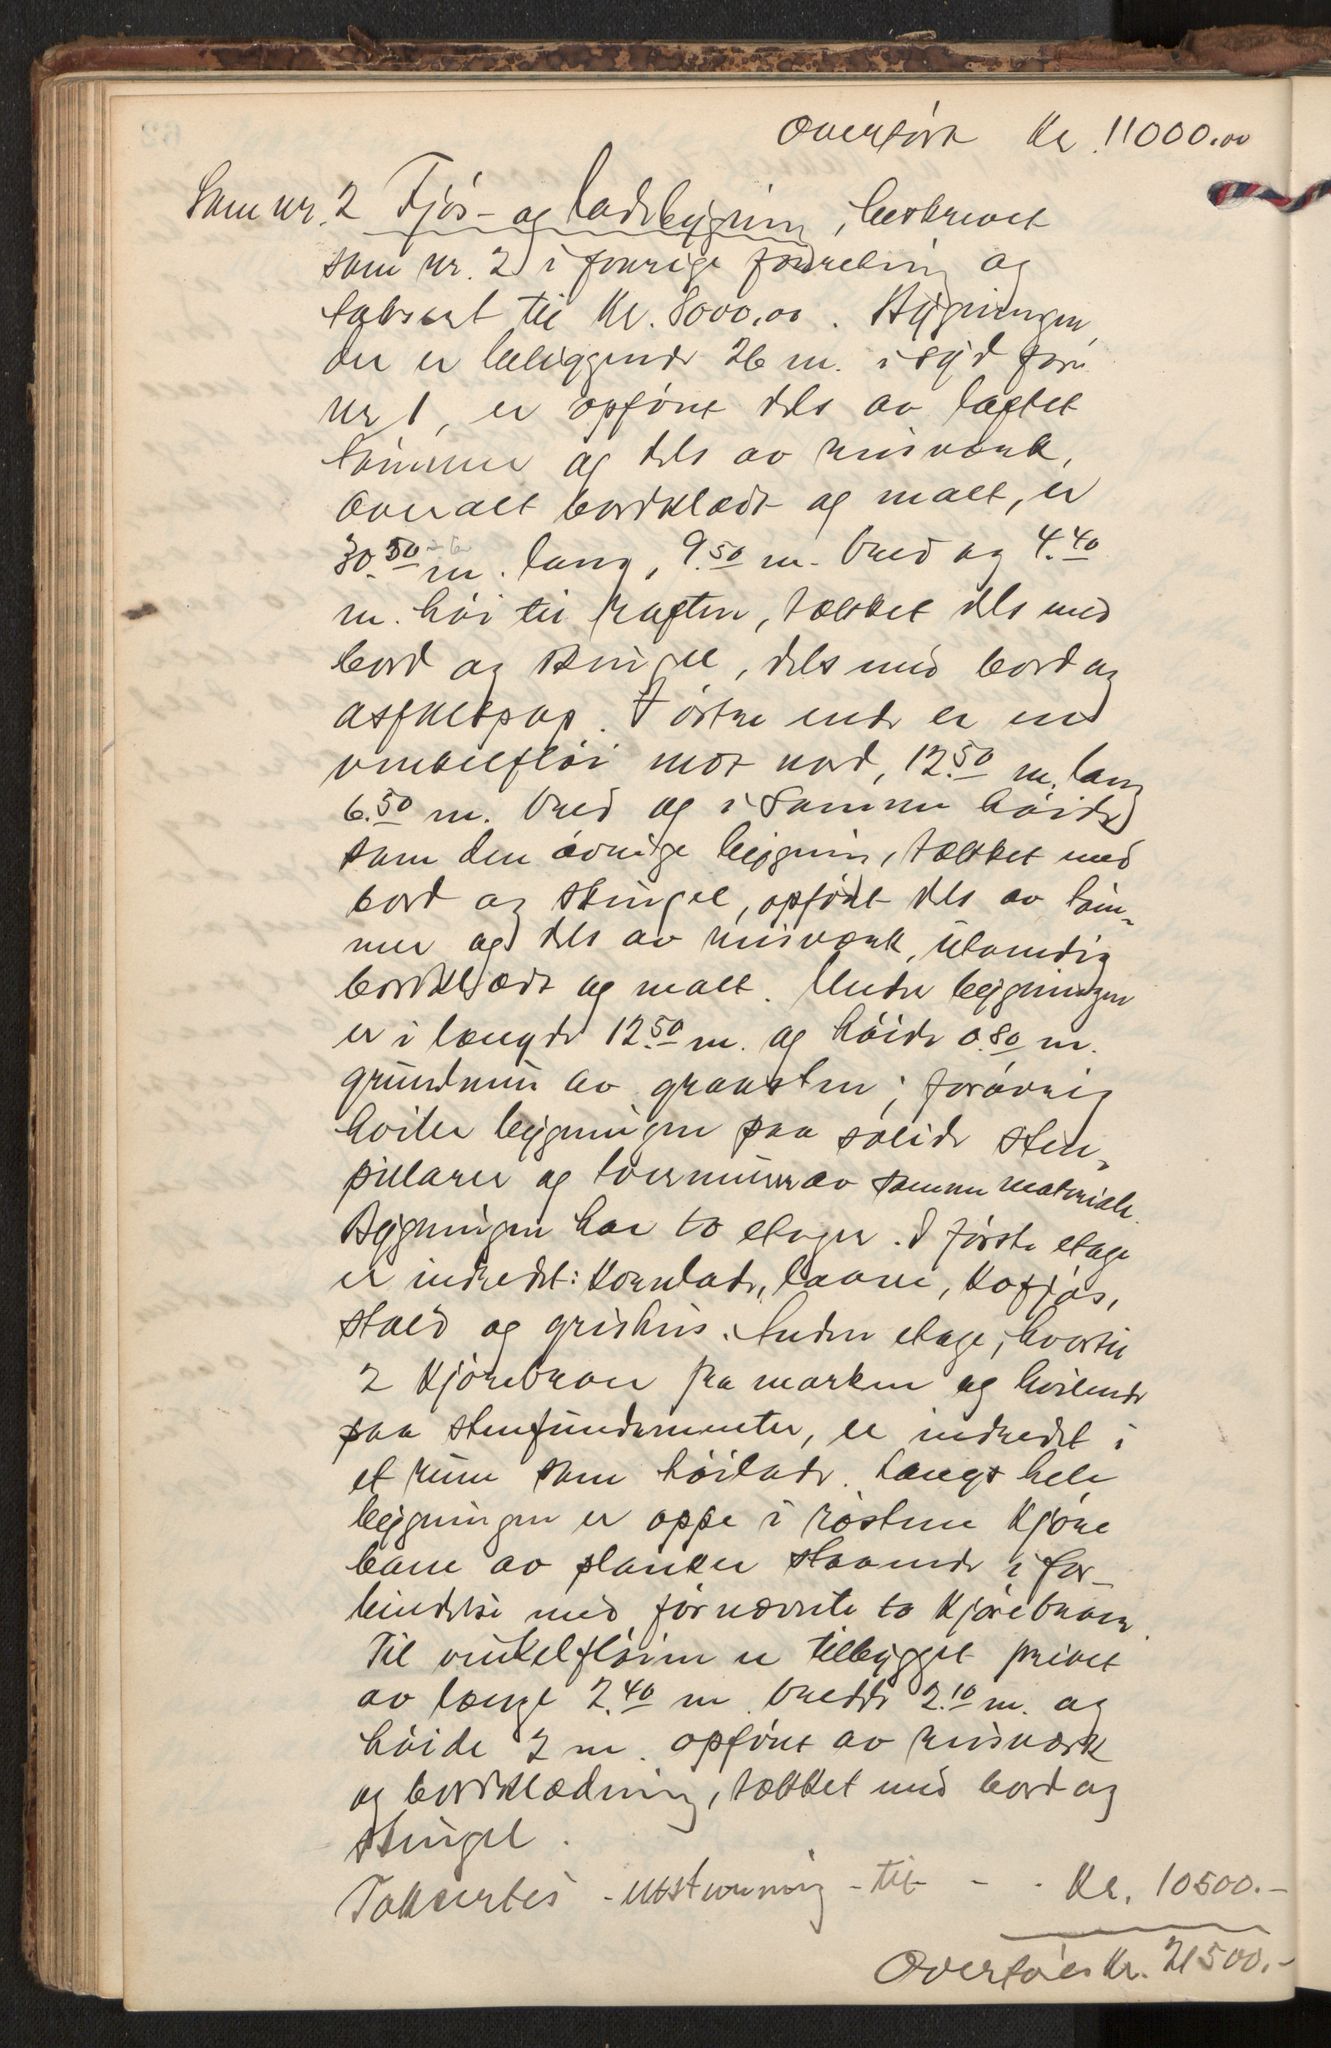 Overført Kr. 11000.00
Som nr. 2 Fjøs- og ladebygning, beskrevet
som nr. 2 i forrige forretning og
taksert til Kr. 8000.00. Bygningen,
der er beliggende 26 m. i syd for
nr 1, er opført dels av laftet
tømmer og dels av reisverk,
overalt bordklædt og malt, er
30.50 m. lang, 9.50 m. bred og 4.40
m. høi til raften, tækket dels med
bord og skingel, dels med bord og
asfaltpap. I østre ende er en
vinkelfløi mot nord, 12.50 m. lang
6.50 m. bred og i samme høide
som den øvrige bygning, tækket med
bord og skingel, opført dels av tøm-
mer og dels av reisværk, utvendig
bordklædt og malt. Under bygningen
er i længde 12.50 m. og høide 0.80 m.
grundmur av graasten; forøvrig
hviler bygningen paa solide sten-
pillarer og tvermurer av samme materiale.
Bygningen har to etager. I første etage
er indredet: Kornlade, laave, Kofjøs,
stald og grishus. Anden etage, hvortil
2 Kjørebroer fra marken og hvilende
paa stenfundamenter, er indredet i
et rum som høilade. Langs hele
bygningen er oppe i røstene Kjøre
bane av planker staaende i for-
bindelse med førnævnte to Kjørebroer.
Til vinkelfløien er tilbygget privet
av længe 2.40 m. bredde 2.10 m. og
høide 2 m. opført av reisværk
og bordklædning, tækket med bord og
skingel.
Taksertes - utstrævning - til - - Kr. 10500.-
Overføres Kr. 21500.-